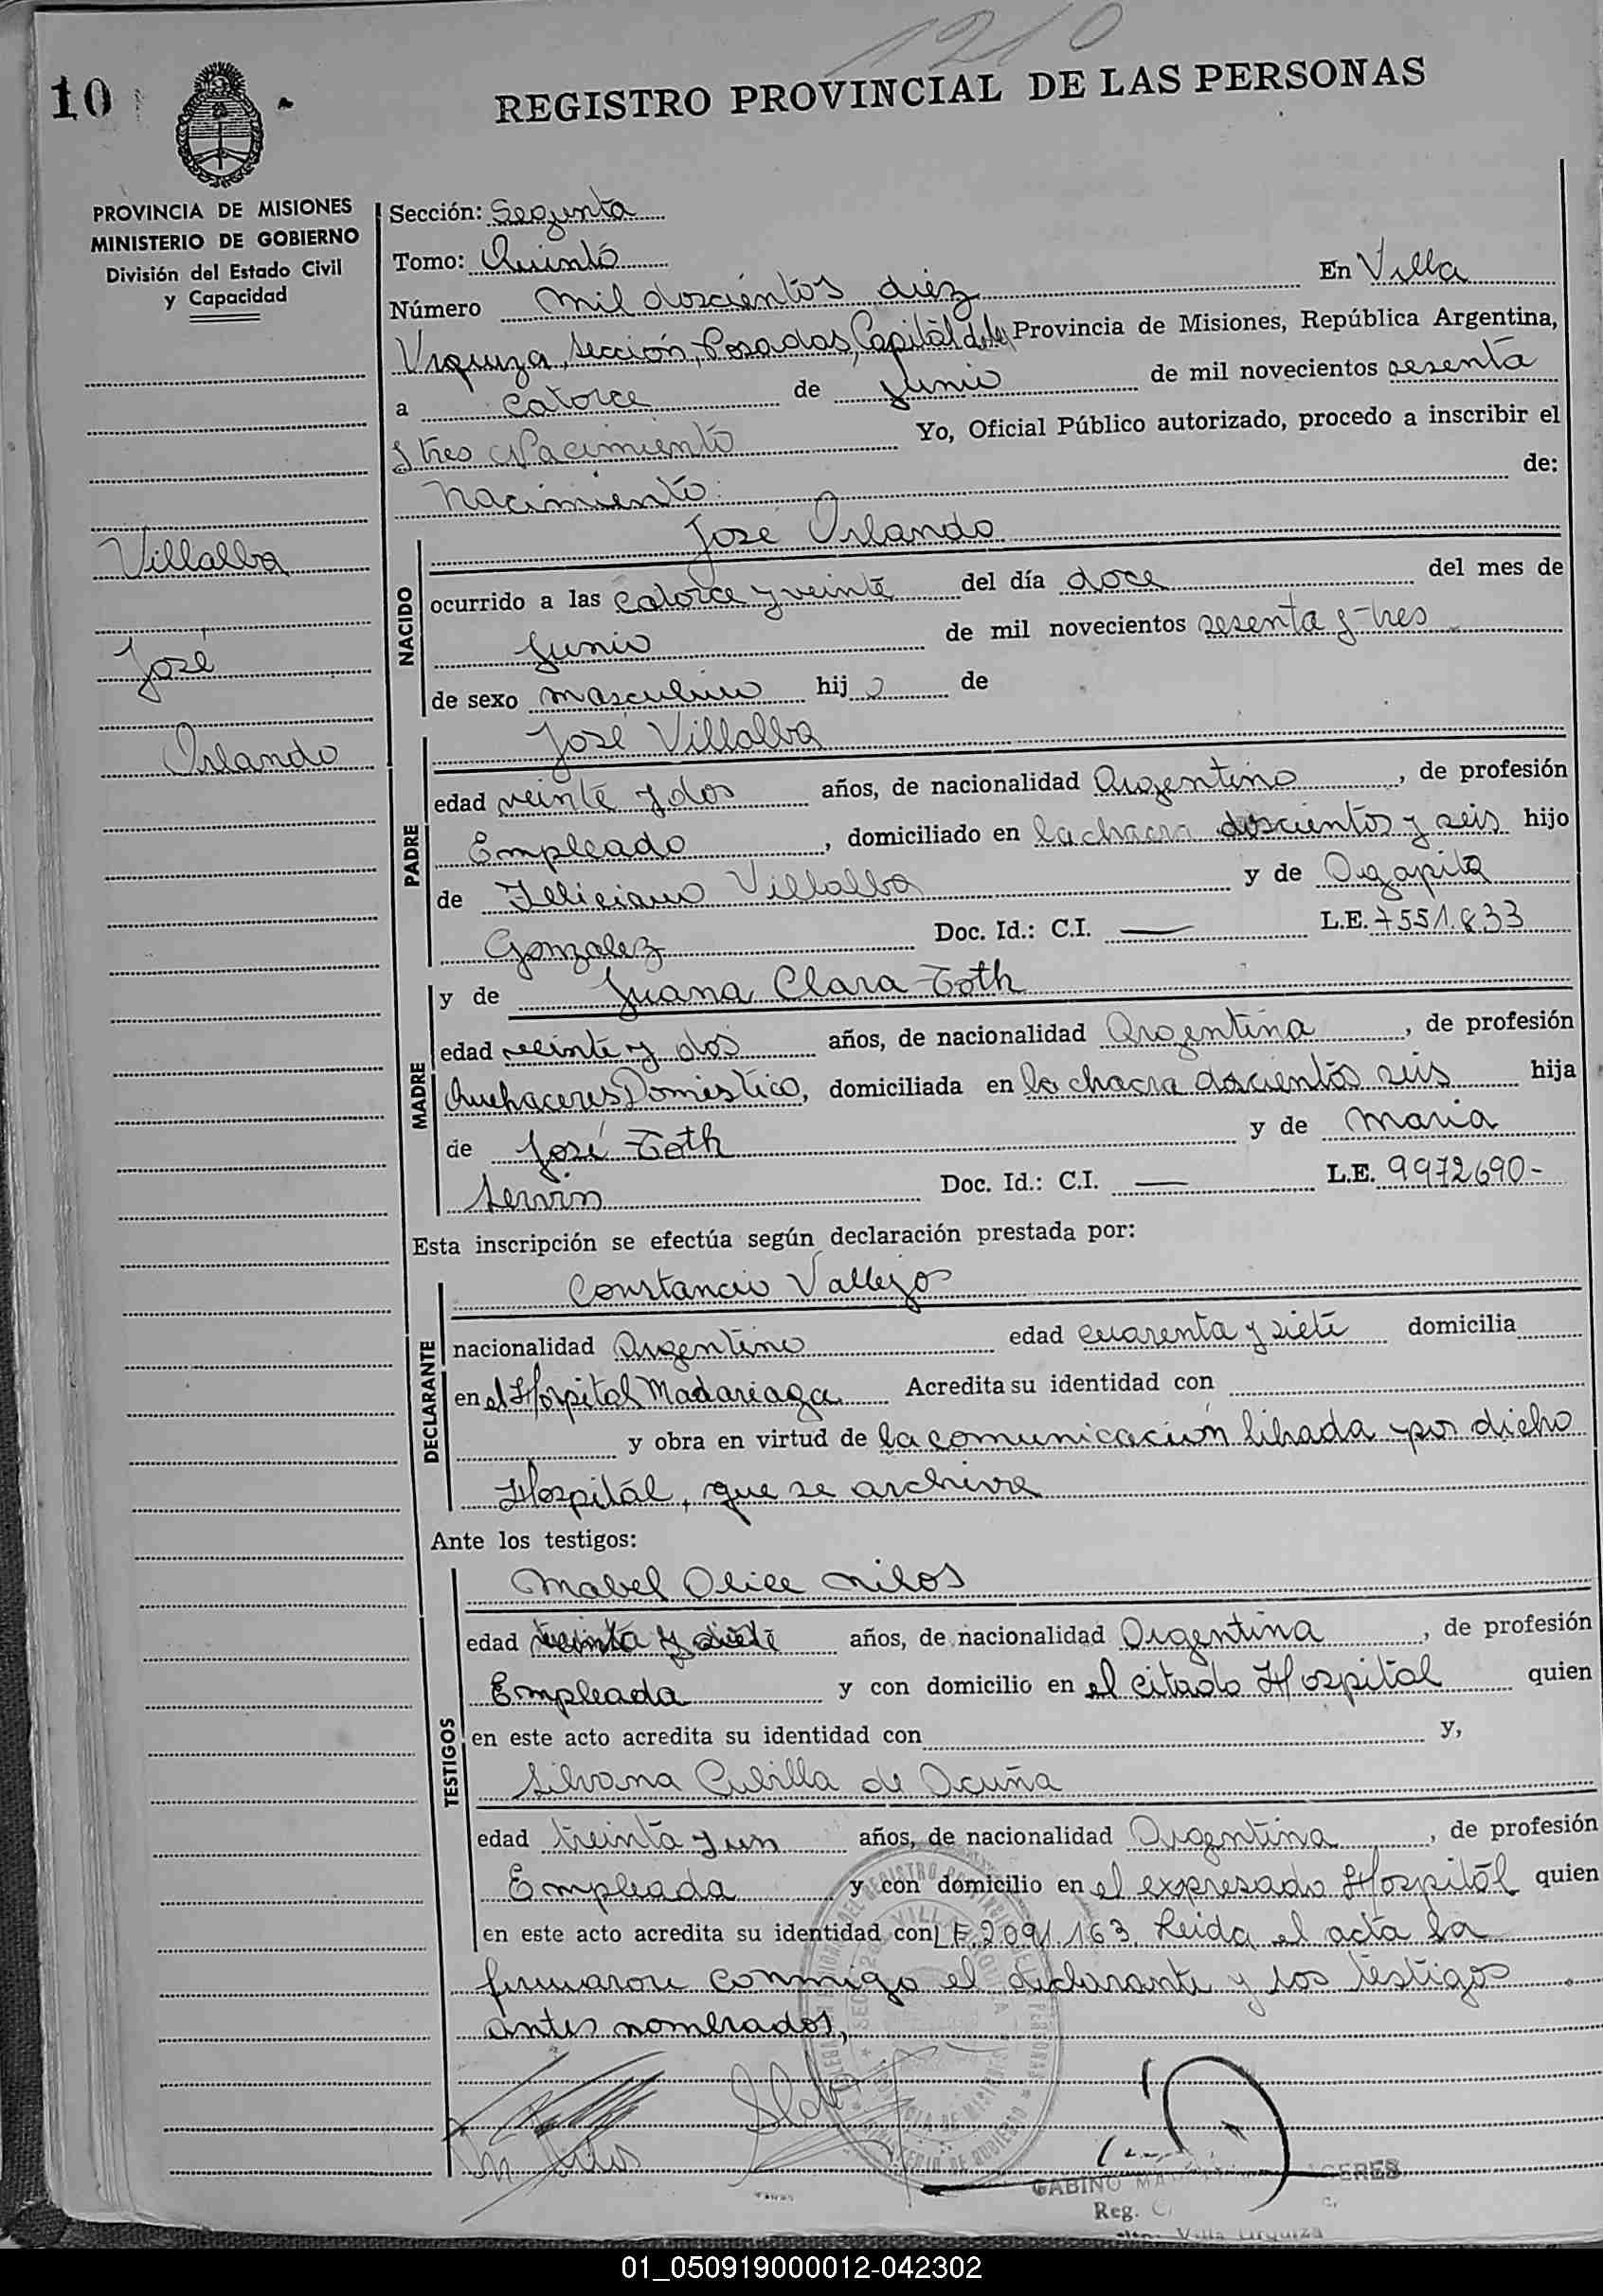 1210
10
REGISTRO PROVINCIAL DE LAS PERSONAS
PROVINCIA DE MISIONES
MINISTERIO DE GOBIERNO
División del Estado Civil
y Capacidad
Villalba
José
Orlando
Sección: Segunta
Tomo: Quinto
Número mil doscientos diez En Villa
Urquiza, Sección, Posadas, Capital de la Provincia de Misiones, República Argentina,
a catorce de Junio de mil novecientos sesenta
y tres Nacimiento Yo, Oficial Público autorizado, procedo a inscribir el
Nacimiento. de:
NACIDO
José Orlando
ocurrido a las catorce y veinte del día doce del mes de
Junio de mil novecientos sesenta y tres
de sexo masculino hijo de
PADRE
José Villalba
edad veinte y dos años, de nacionalidad Argentino, de profesión
Empleado, domiciliado en la chacra doscientos y seis hijo
de Feliciano Villalba y de Agapita
Gonzalez Doc. Id.: C.I. — L.E. 7551.833
MADRE
y de Juana Clara Toth
edad veinte y dos años, de nacionalidad Argentina, de profesión
Quehaceres Doméstico, domiciliada en la chacra doscientos seis hija
de José Toth y de Maria
Servin Doc. Id.: C.I. — L.E. 9972690-
Esta inscripción se efectúa según declaración prestada por:
DECLARANTE
Constancio Vallejos
nacionalidad Argentino edad cuarenta y siete domicilia
en el Hospital Madariaga Acredita su identidad con
y obra en virtud de la comunicación librada por dicho
Hospital, que se archiva
Ante los testigos:
TESTIGOS
Mabel Milos
edad y siete años, de nacionalidad Argentina, de profesión
Empleada y con domicilio en el citado Hospital quien
en este acto acredita su identidad con y,
Silvana Cubilla de Acuña
edad treinta y un años, de nacionalidad Argentina, de profesión
Empleada y con domicilio en el expresado Hospital quien
en este acto acredita su identidad con L.E. 2.091.163. Leida el acta la
firmaron conmigo el declarante y los testigos
antes nombrados,
GABINO
Reg.
Villa Urquiza
01_050919000012-042302